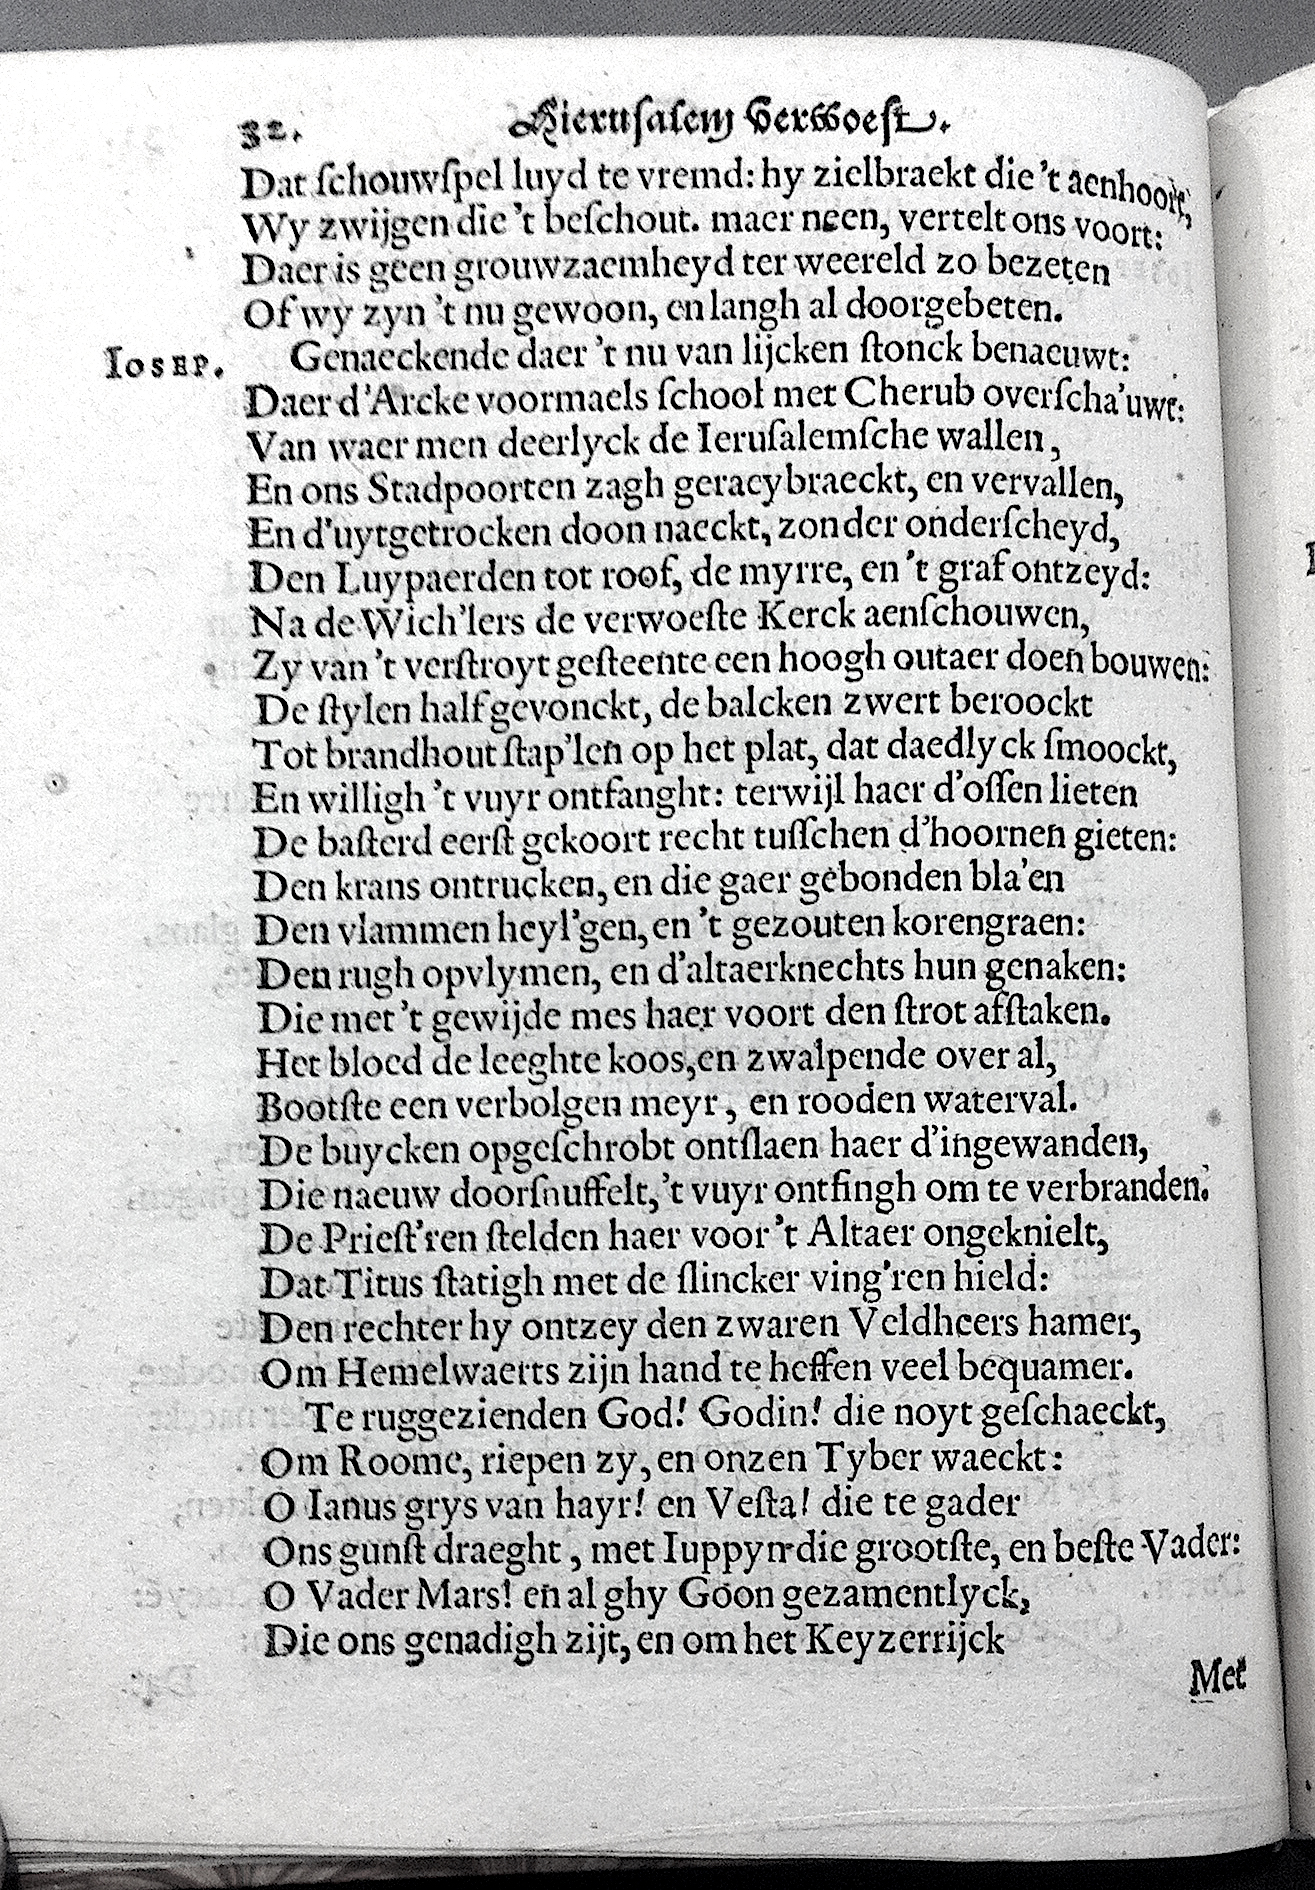 32. Hierusalem Verwoest.
Dat ſchouwſpel luyd te vremd: hy zielbraekt die 't aenhoort,
Wy zwijgen die 't beſchout. maer neen, vertelt ons voort:
Daer is geen grouwzaemheyd ter weereld zo bezeten
Of wy zyn 't nu gewoon, en langh al doorgebeten.
IOSEP. Genaeckende daer 't nu van lijcken ſtonck benaeuwt:
Daer d'Arcke voormaels school met Cherub overſcha'uwt:
Van waer men deerlyck de Ieruſalemſche wallen,
En ons Stadpoorten zagh geraeybraeckt, en vervallen,
En d'uytgetrocken doon naeckt, zonder onderſcheyd,
Den Luypaerden tot roof, de myrre, en 't graf ontzeyd:
Na de Wich'lers de verwoeſte Kerck aenſchouwen,
Zy van 't verſtroyt geſteente een hoogh outaer doen bouwen:
De ſtylen half gevonckt, de balcken zwert beroockt
Tot brandhout ſtap'len op het plat, dat daedlyck ſmoockt,
En willigh 't vuyr ontfanght: terwijl haer d'oſſen lieten
De baſterd eerſt gekoort recht tuſſchen d'hoornen gieten:
Den krans ontrucken, en die gaer gebonden bla'en
Den vlammen heyl'gen, en 't gezouten korengraen:
Den rugh opvlymen, en d'altaerknechts hun genaken:
Die met 't gewijde mes haer voort den ſtrot afſtaken.
Het bloed de leeghte koos, en zwalpende over al,
Bootſte een verbolgen meyr, en rooden waterval.
De buycken opgeſchrobt ontſlaen haer d'ingewanden,
Die naeuw doorſnuffelt, 't vuyr ontfingh om te verbranden.
De Prieſt'ren ſtelden haer voor 't Altaer ongeknielt,
Dat Titus ſtatigh met de ſlincker ving'ren hield:
Den rechter hy ontzey den zwaren Veldheers hamer,
Om Hemelwaerts zijn hand te heffen veel bequamer.
Te ruggezienden God! Godin! die noyt geſchaeckt,
Om Roome, riepen zy, en onzen Tyber waeckt:
O Ianus grys van hayr! en Veſta! die te gader
Ons gunſt draeght, met Iuppyn die grootſte, en beſte Vader:
O Vader Mars! en al ghy Goon gezamentlyck,
Die ons genadigh zijt, en om het Keyzerrijck
Met